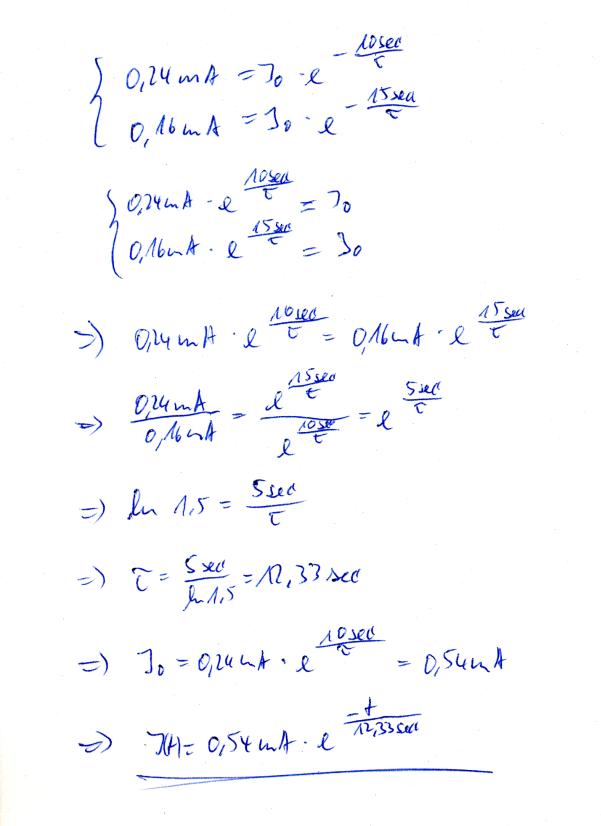 0,24mA = I₀ · e^(-10sec/τ)
0,16mA = I₀ · e^(-15sec/τ)
0,24mA · e^(10sec/τ) = I₀
0,16mA · e^(15sec/τ) = I₀
⇒) 0,24mA · e^(10sec/τ) = 0,16mA · e^(15sec/τ)
⇒) 0,24mA/0,16mA = e^(15sec/τ)/e^(10sec/τ) = e^(5sec/τ)
⇒) ln 1,5 = 5sec/τ
⇒) τ = 5sec/ln1,5 = 12,33 sec
⇒) I₀ = 0,24mA · e^(10sec/τ) = 0,54mA
⇒) I(t) = 0,54mA · e^(-t/12,33sec)